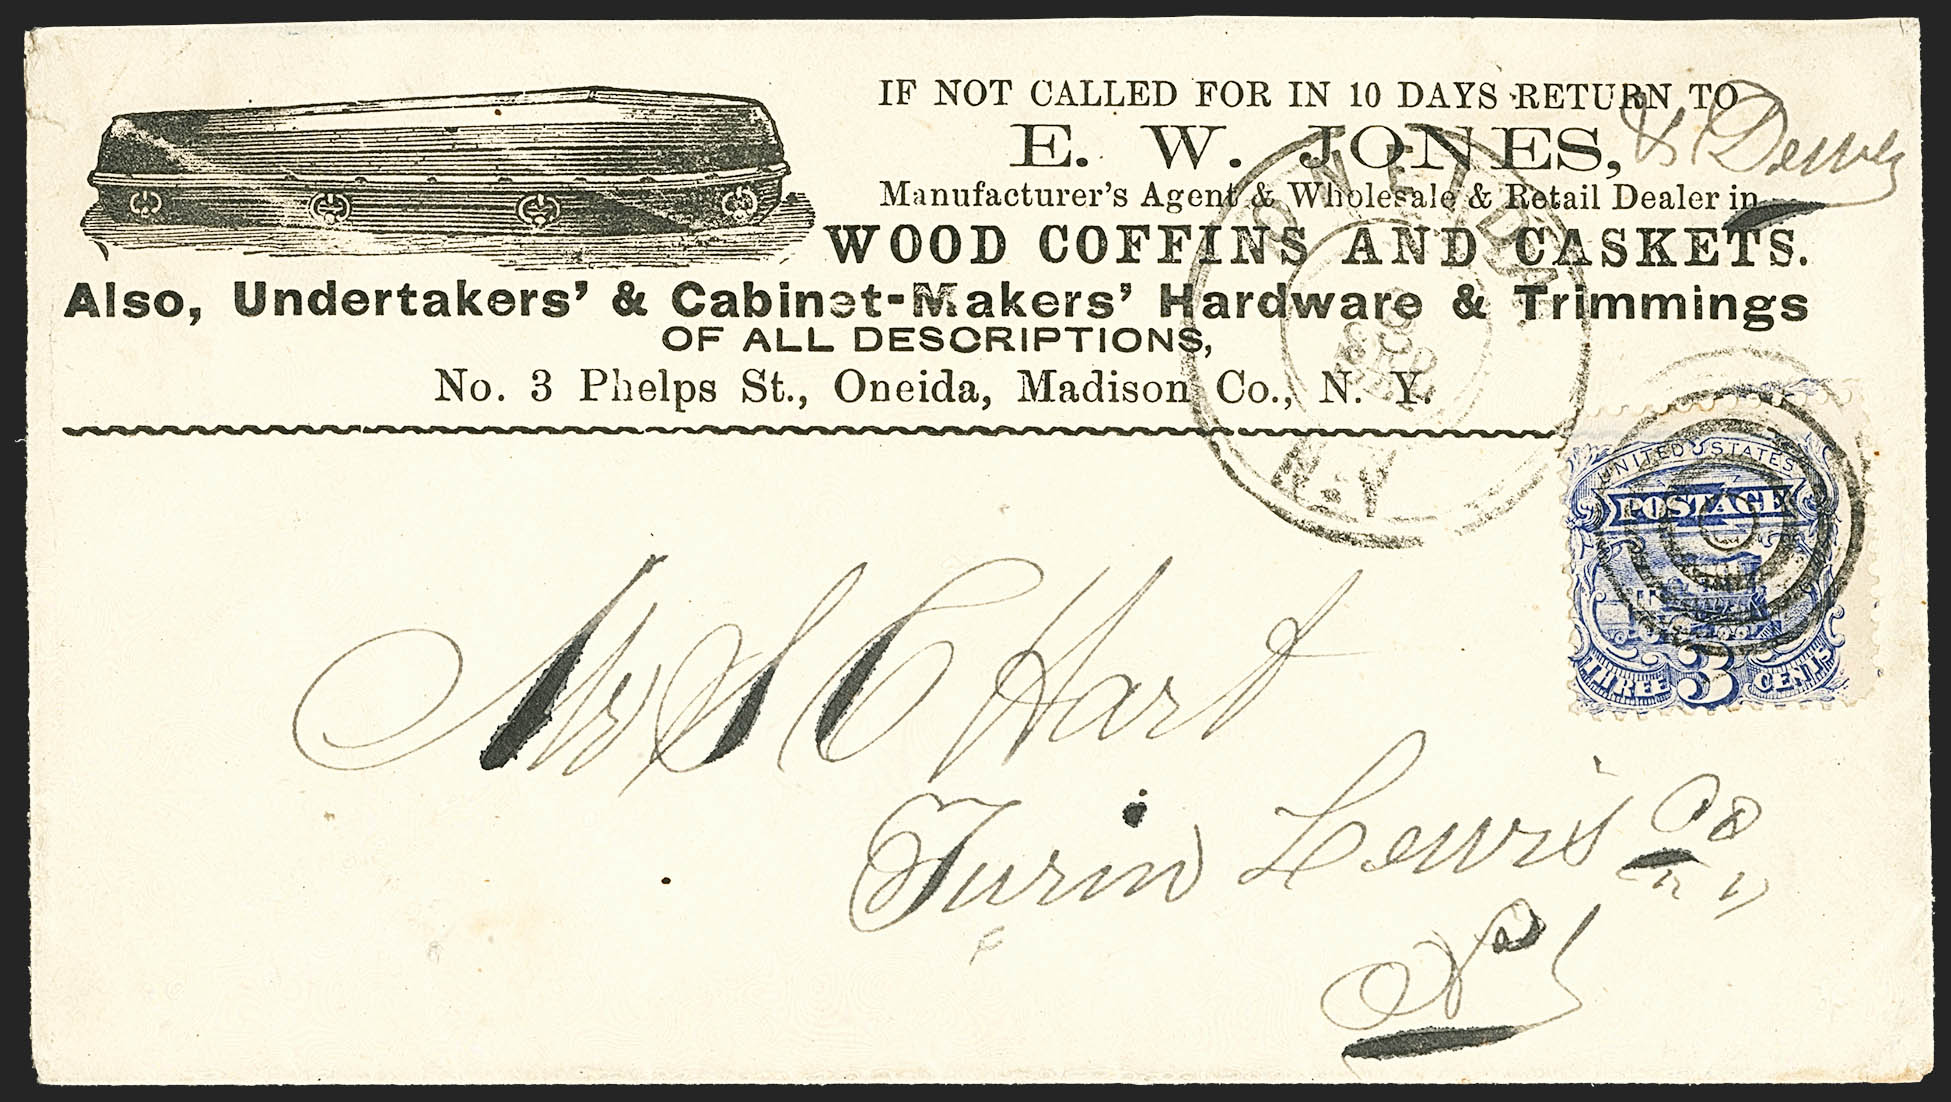 IF NOT CALLED FOR IN 10 DAYS RETURN TO
E. W. JONES, & Dewey
Manufacturer's Agent & Wholesale & Retail Dealer in
WOOD COFFINS AND CASKETS.
Also, Undertakers' & Cabinet-Makers' Hardware & Trimmings
OF ALL DESCRIPTIONS,
No. 3 Phelps St., Oneida, Madison Co., N. Y.
ONEIDA
N.Y.
UNITED STATES
POSTAGE
THREE 3 CENTS
Mr S C Hart
Turin Lewis Co
N Y